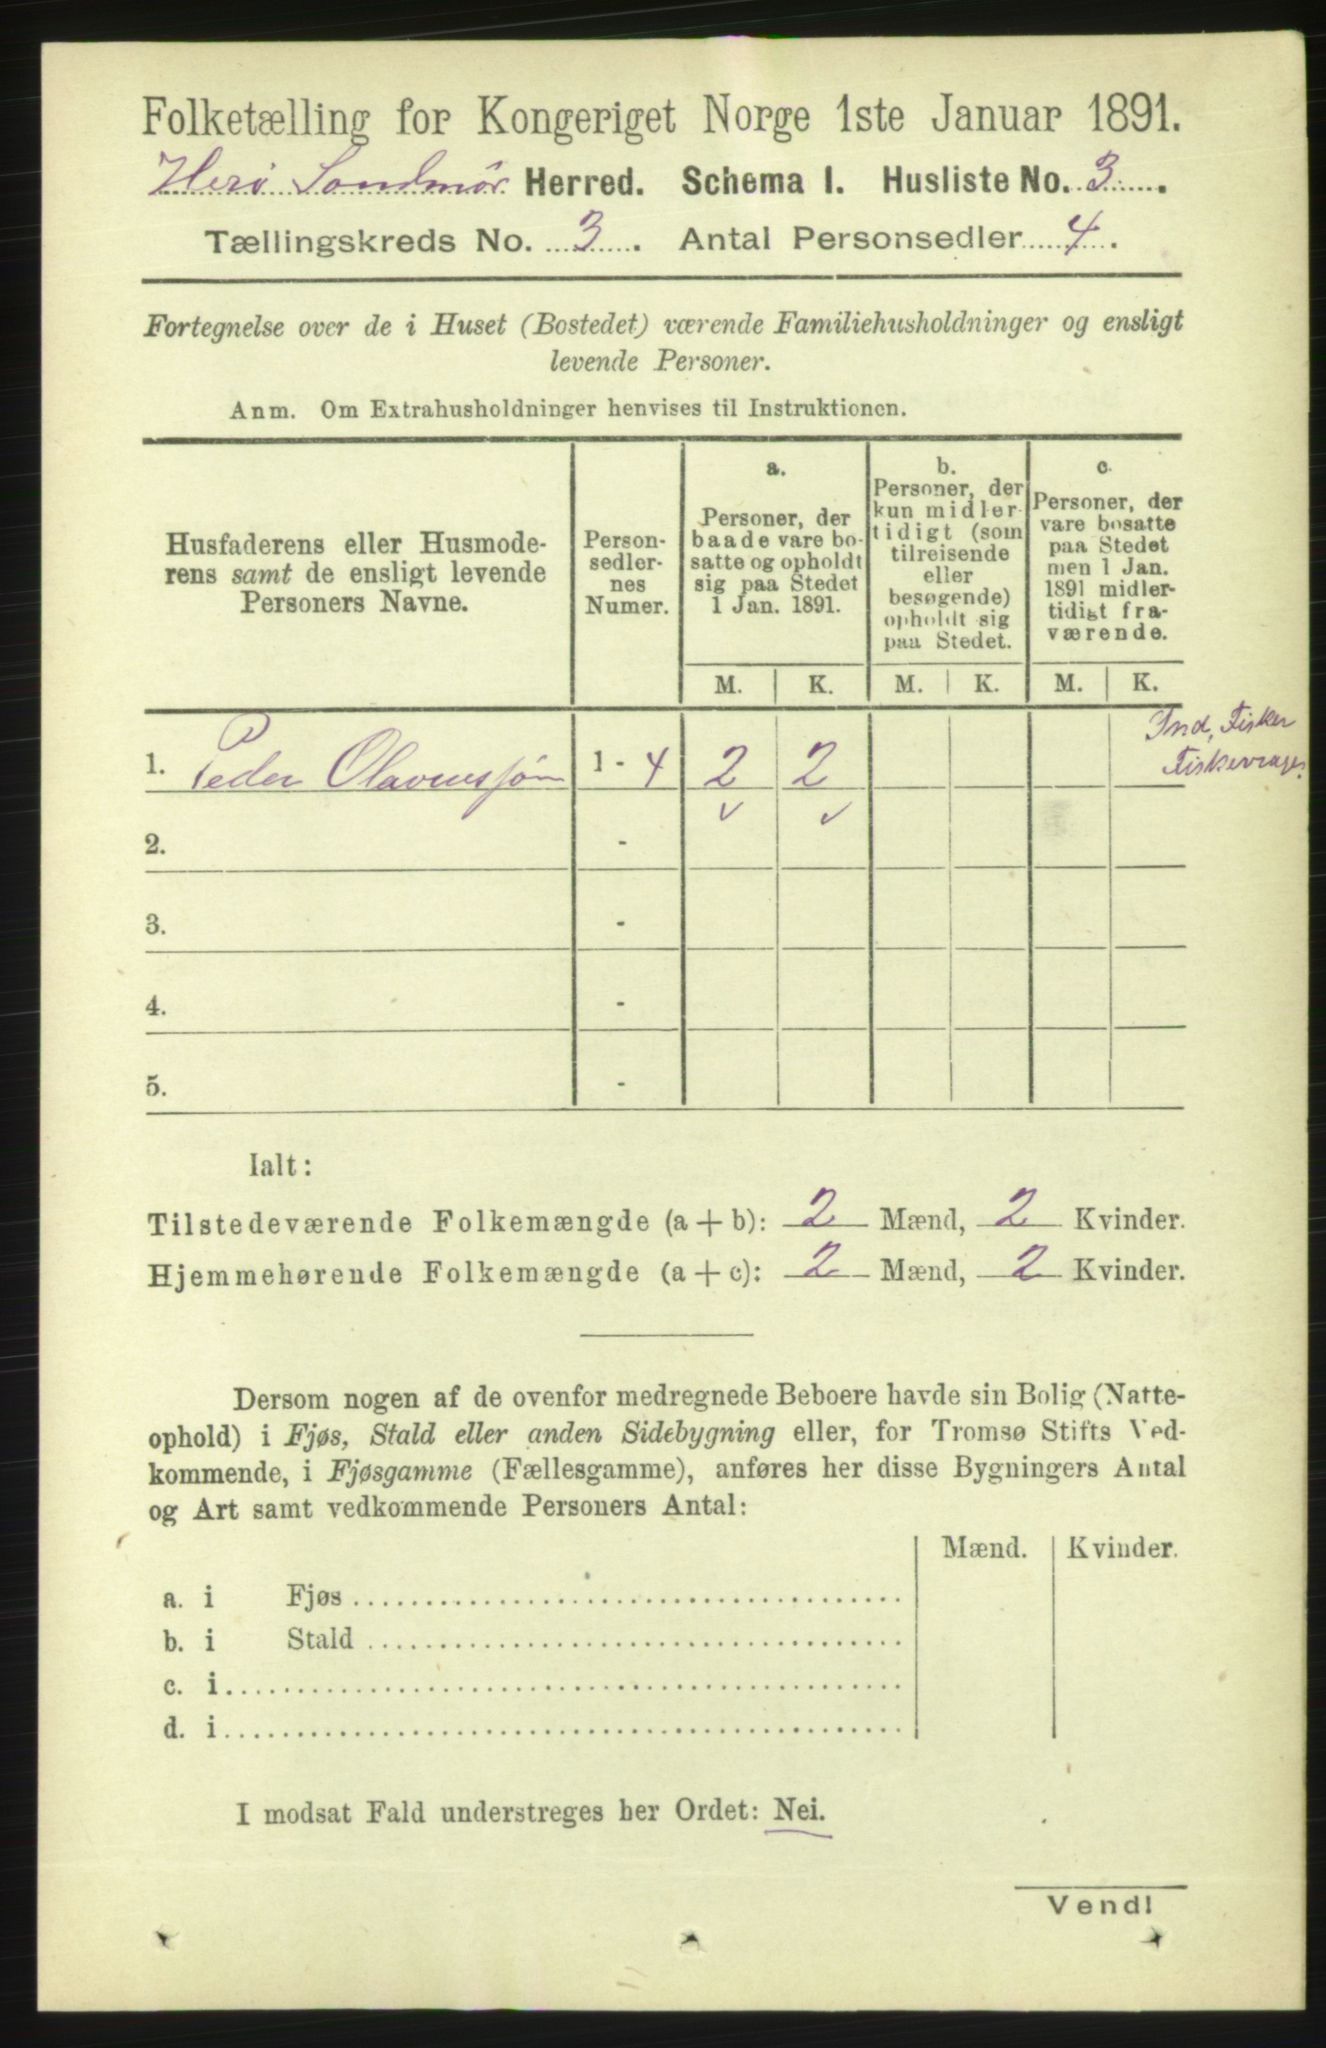 Folketælling for Kongeriget Norge 1ste Januar 1891.
Herö Sondmör Herred. Schema I. Husliste No. 3.
Tællingskreds No. 3. Antal Personsedler 4.
Fortegnelse over de i Huset (Bostedet) værende Familiehusholdninger og ensligt
levende Personer.
Anm. Om Extrahusholdninger henvises til Instruktionen.
Husfaderens eller Husmode-
rens samt de ensligt levende
Personers Navne.
Person-
sedler-
nes
Numer.
a.
Personer, der
baade vare bo-
satte og opholdt
sig paa Stedet
1 Jan. 1891.
b.
Personer, der
kun midler-
tidigt (som
tilreisende
eller
besøgende)
opholdt sig
paa Stedet.
c.
Personer, der
vare bosatte
paa Stedet
men 1 Jan.
1891 midler-
tidigt fra-
værende.
M. K. M. K. M. K.
Ind, Fisker
Fiskevrager
1. Peder Olavenssøn 1 - 4 2 2
2. -
3. -
4. -
5. -
Ialt:
Tilstedeværende Folkemængde (a + b): 2 Mænd, 2 Kvinder.
Hjemmehørende Folkemængde (a + c): 2 Mænd, 2 Kvinder.
Dersom nogen af de ovenfor medregnede Beboere havde sin Bolig (Natte-
ophold) i Fjøs, Stald eller anden Sidebygning eller, for Tromsø Stifts Ved-
kommende, i Fjøsgamme (Fællesgamme), anføres her disse Bygningers Antal
og Art samt vedkommende Personers Antal:
Mænd. Kvinder.
a. i Fjøs
b. i Stald
c. i
d. i
I modsat Fald understreges her Ordet: Nei.
Vend!